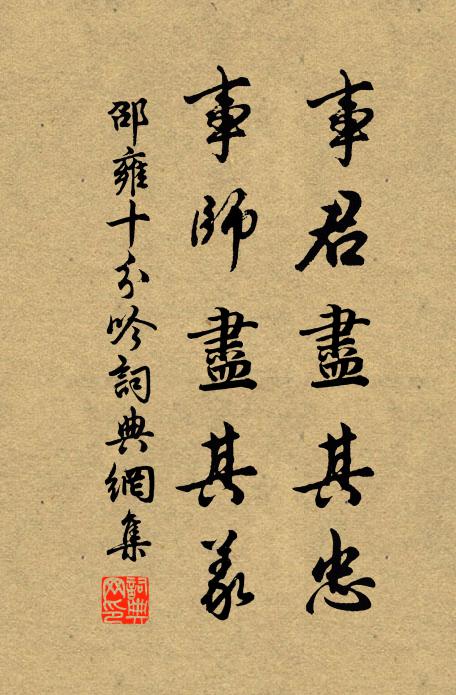 事君盡其忠
事師盡其義
邵雍十分吟詞典網集
詞典網印